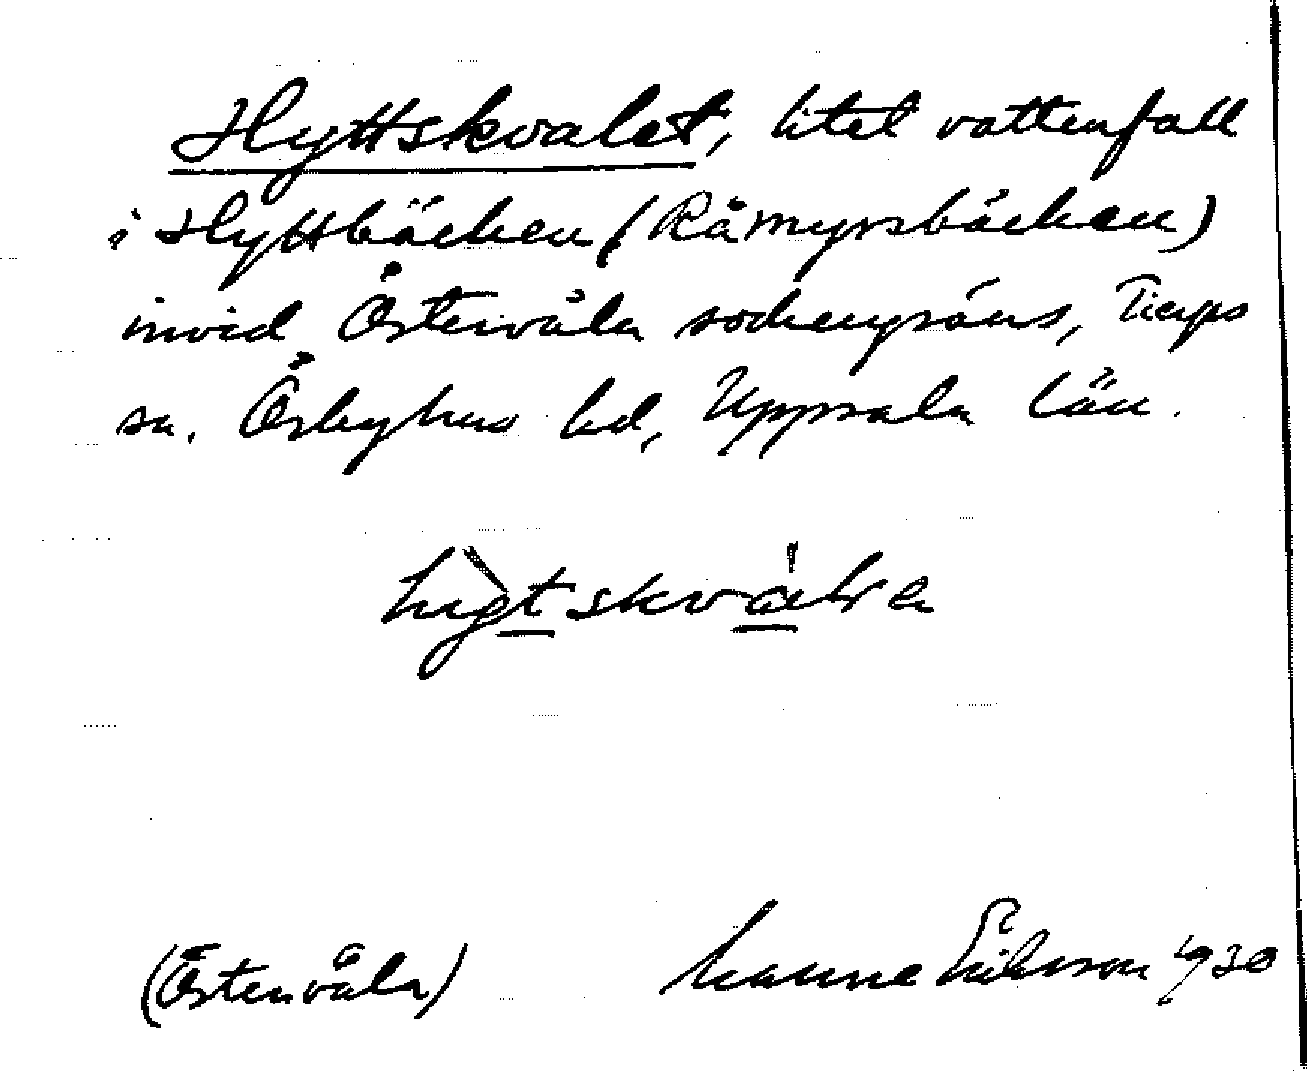 Hyttskvalet, litet vattenfall
i Hyttbäcken (Råmyrsbäcken)
invid Östervåla sockengräns, Tierps
sn. Örbyhus hd, Uppsala län.
(Östervåla) Manne Eriksson 1930